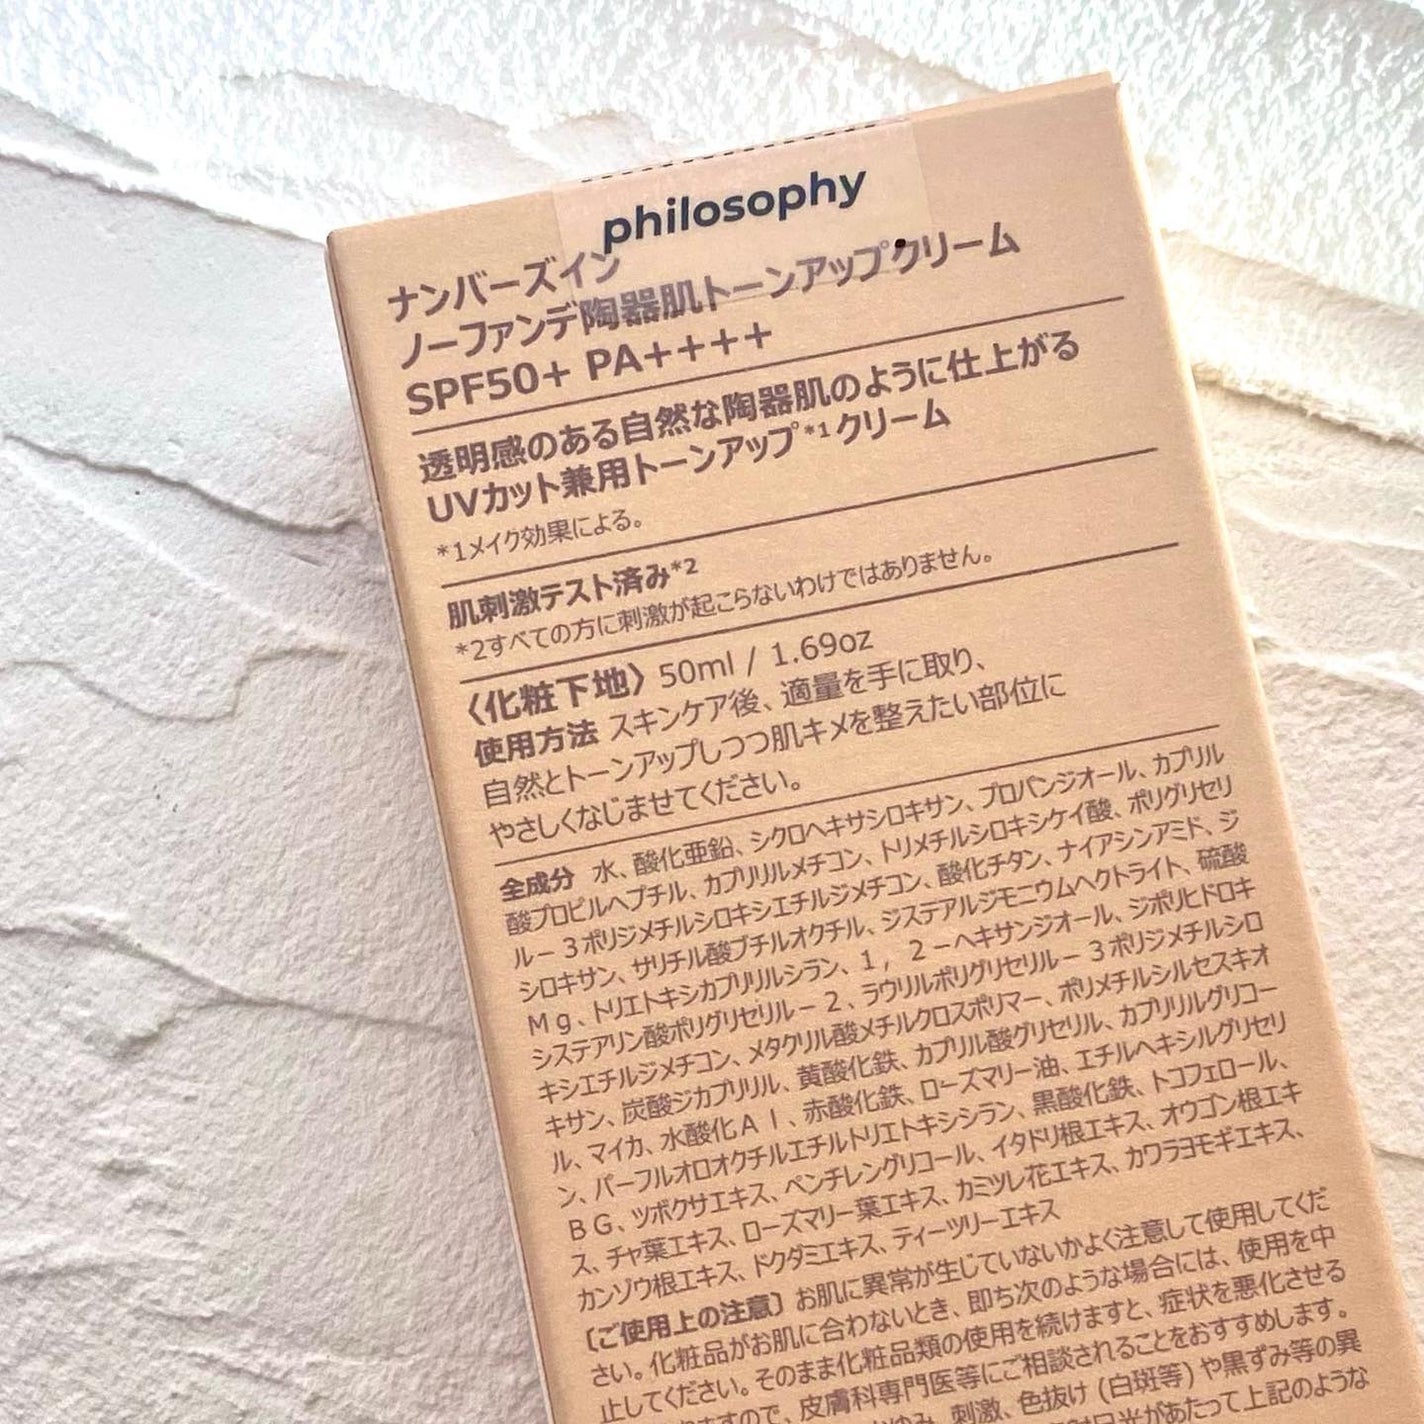 philosophy
ナンバーズイン
ノーファンデ陶器肌トーンアップクリーム
SPF50+ PA++++
透明感のある自然な陶器肌のように仕上がる
UVカット兼用トーンアップ*1クリーム
*1メイク効果による。
肌刺激テスト済み*2
*2すべての方に刺激が起こらないわけではありません。
〈化粧下地〉50ml / 1.69oz
使用方法 スキンケア後、適量を手に取り、
自然とトーンアップしつつ肌キメを整えたい部位に
やさしくなじませてください。
全成分 水、酸化亜鉛、シクロヘキサシロキサン、プロパンジオール、カプリル
酸プロピルヘプチル、カプリリルメチコン、トリメチルシロキシケイ酸、ポリグリセリ
ル－３ポリジメチルシロキシエチルジメチコン、酸化チタン、ナイアシンアミド、ジ
シロキサン、サリチル酸ブチルオクチル、ジステアルジモニウムヘクトライト、硫酸
Ｍｇ、トリエトキシカプリリルシラン、１，２－ヘキサンジオール、ジポリヒドロキ
システアリン酸ポリグリセリル－２、ラウリルポリグリセリル－３ポリジメチルシロ
キシエチルジメチコン、メタクリル酸メチルクロスポリマー、ポリメチルシルセスキオ
キサン、炭酸ジカプリリル、黄酸化鉄、カプリル酸グリセリル、カプリリルグリコー
ル、マイカ、水酸化Ａｌ、赤酸化鉄、ローズマリー油、エチルヘキシルグリセリ
ン、パーフルオロオクチルエチルトリエトキシシラン、黒酸化鉄、トコフェロール、
ＢＧ、ツボクサエキス、ペンチレングリコール、イタドリ根エキス、オウゴン根エキ
ス、チャ葉エキス、ローズマリー葉エキス、カミツレ花エキス、カワラヨモギエキス、
カンゾウ根エキス、ドクダミエキス、ティーツリーエキス
〔ご使用上の注意〕お肌に異常が生じていないかよく注意して使用してくだ
さい。化粧品がお肌に合わないとき、即ち次のような場合には、使用を中
止してください。そのまま化粧品類の使用を続けますと、症状を悪化させる
ますので、皮膚科専門医等にご相談されることをおすすめします。
刺激、色抜け(白斑等)や黒ずみ等の異
日光があたって上記のような